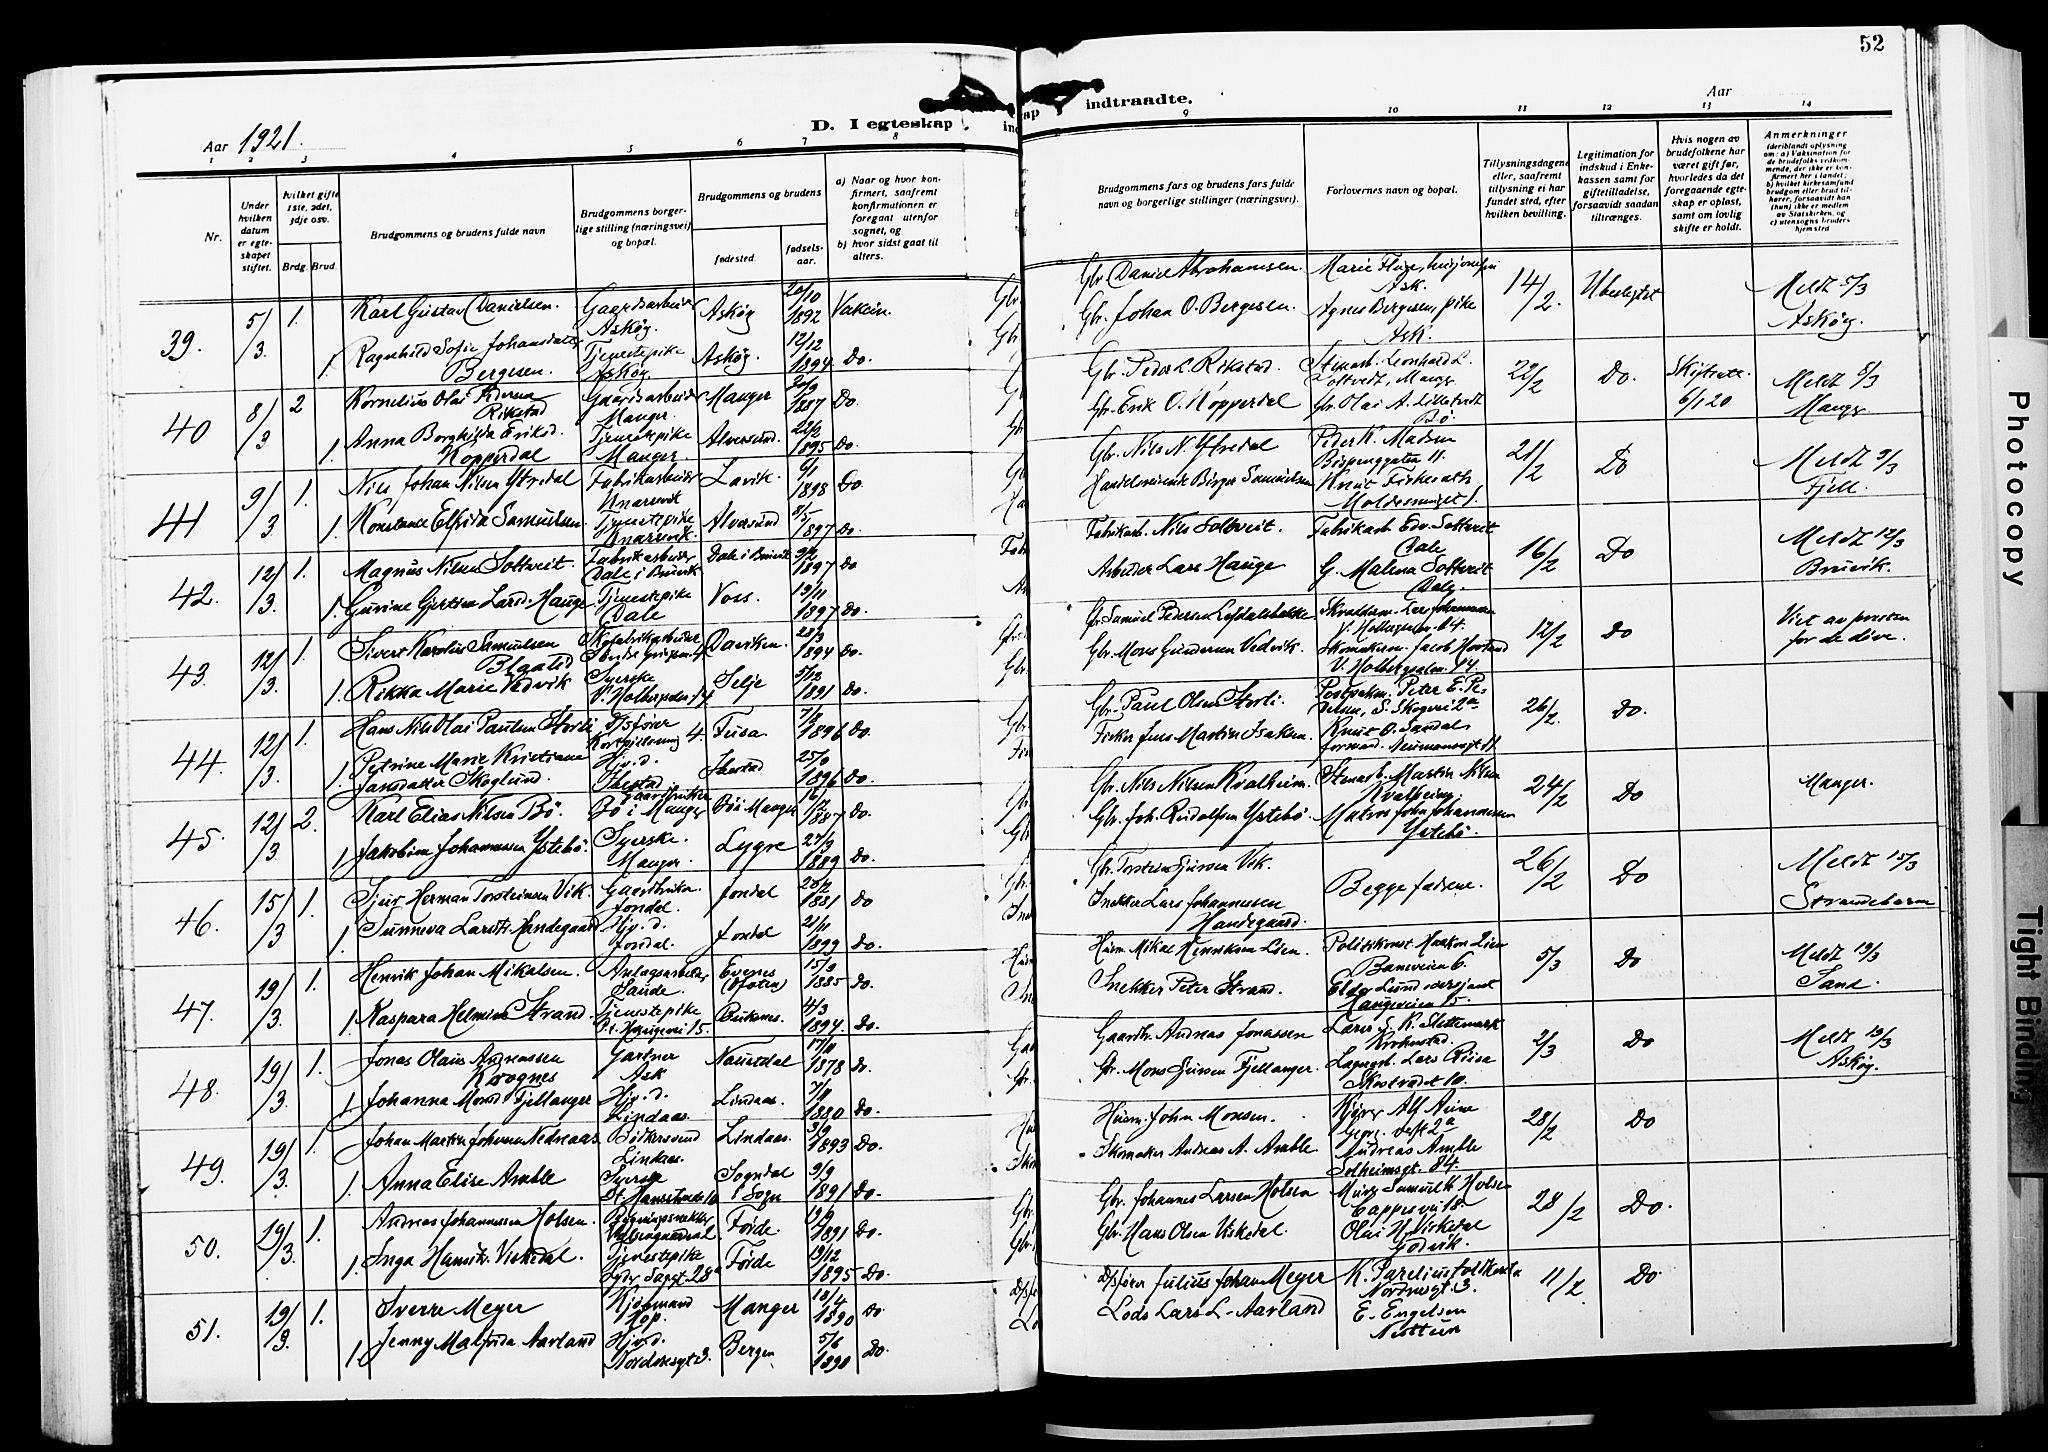 52
D. I egteskap
indtraadte.
Aar 1921.
Aar
1 2 3 4 5 6 7 8
9 10 11 12 13 14
Nr.
Under hvilken datum er egteskapet stiftet.
hvilket gifte 1ste, 2det, 3dje osv.
Brdg. Brud.
Brudgommens og brudens fulde navn
Brudgommens borgerlige stilling (næringsvei) og bopæl.
Brudgommens og brudens
fødested.
fødselsaar.
a) Naar og hvor konfirmert, saafremt konfirmationen er foregaat utenfor sognet, og
b) hvor sidst gaat til alters.
Brudgommens fars og brudens fars fulde navn og borgerlige stillinger (næringsvei).
Forlovernes navn og bopæl.
Tillysningsdagene eller, saafremt tillysning ei har fundet sted, efter hvilken bevilling.
Legitimation for indskud i Enkekassen samt for giftetilladelse, forsaavidt saadan tiltrænges.
Hvis nogen av brudefolkene har været gift før, hvorledes da det foregaaende egteskap er opløst, samt om lovlig skifte er holdt.
Anmerkninger (deriblandt oplysning om: a) Vaksination for de brudefolks vedkommende, der ikke er konfirmert her i landet; b) hvilket kirkesamfund brudgom eller brud tilhører, forsaavidt han (hun) ikke er medlem av Statskirken, og c) utensogns bruders hjemsted
39. 5/3 1. Karl Gustav Danielsen. Gaardsarbeider Askøy. Askøy 20/10 1892 Vakcin.
1. Ragnhild Sofie Johansdatter Bergesen. Tjenestepike Askøy. Askøy. 12/12 1894 Do.
Gbr. Daniel Abrahamsen. Ask. 14/2. Ubeslegtet Meldt 5/3 Askøy.
Gbr. Johan O. Bergesen. Agnes Bergesen, pike Ask.
40 8/3 2 Kornelius Olai Pedersen Rikstad Gaardsarbeider Manger. Manger 20/9 1887 Do.
1. Anna Borghilda Eriksd. Kopperdal Tjenestepike Manger. Alversund. 22/2 1895 Do.
Gbr. Peder L. Rikstad. Leonhard L. Manger 22/2 Do. Skifteatt. 6/1 20 Meldt 8/3 Manger
Gbr. Erik O. Kopperdal Gbr. Olai A. Bø.
41 9/3 1. Nils Johan Nilsen Ytredal Fabrikarbeider Knarrevik Lavik. 9/1 1898 Do.
1. Konstanse Elfrida Samuelsen Tjenestepike Knarrevik. Alversund 8/5 1897 Do.
Gbr. Nils N. Ytredal Peder K. Madsen Bispenggaten 11. 21/2 Do Meldt 9/3 Fjell.
Handelsreisende Birger Samuelsen Knut
42. 12/3. 1. Magnus Nilsen Soltveit. Fabrikarbeider Dale i Bruvik Dale i Bruvik 9/2 1897 Do
1. Gurine Gjertsen Larsd. Hauge. Tjenestepike Dale Voss. 19/11 1897 Do.
Fabrikarb. Nils Soltveit. Fabrikarb. Edv. Soltveit Dale 16/2 Do Meldt 12/3 Bruvik.
Arbeider Lars Hauge G. Malena Soltveit Dale.
43. 12/3. 1. Sivert Karolius Samuelsen Skofabrikarbeider Davikem. 28/3 1894 Do.
1. Rikka Marie Vedvik Syerske V. Holbergsalm. 14 Selje 5/12 1891 Do.
Gbr. Samuel Pedersen 12/2 Do Viet av presten for de døve.
Gbr. Mons Gunderson Vedvik. Skomakerm. Jacob V. Holbergsalm. 14.
44. 12/3. 1. Hans Nils Olai Paulsen Storli D/sfører Fusa. 7/9 1896 Do.
1. Petrine Marie Kristiane Jansdatter Skoglund. Hjv. d. Ibestad Ibestad 25/9 1896 Do.
Gbr. Paul Olsen Storli. Peter E. Pedersen, S. Skogvei 2a 26/2. Do.
Fisker Jens Martin Isaksen. Knut O. Sandal Neumannsgt. 11
45. 12/3 2. Karl Elias Nilsen Bø. Gaardbruker Bø i Manger Bø i Manger 1887 Do.
1. Jakobine Johannessen Ystebø. Syerske. Manger. Lygre 27/3 1889 Do.
Gbr. Nils Nilsen Kvalheim. Stenarb. Martin Nilsen Kvalheim. 24/2 Do Manger.
Gbr. Joh. Rudolfsen Ystebø Matros John Johannessen Ystebø.
46. 15/3 1. Sjur Herman Torsteinsen Vik. Gaardbruker. Jondal. Jondal 20/2 1881 Do
1. Sunneva Larsdtr. Handegaard Hjv. d. Jondal. Jondal 21/11 1899 Do.
Gbr. Torstein Sjursen Vik. Begge fædrene. 26/2 Do Meldt 15/3 Strandebarm
Snekker Lars Johannessen Handegaard.
47. 19/3. 1. Henrik Johan Mikalsen. Anlægsarbeider Saude. Evenes (Ofoten) 15/9 1885 Do.
1. Kaspara Helmine Strand. Tjenestepike Haugevei 15. Buksnes. 4/3 1894. Do.
Husm. Mikal Henriksen Lien. Politikonst. Haakon Lien Baneveien 6. 5/3 Do Meldt 19/3 Sand.
Snekker Peter Strand. Lund Haugeveien 15.
48. 19/3. 1. Jonas Olaus Andreassen Kvognes Gartner Ask Naustdal 17/11 1878 Do.
1. Johanna Monsd. Fjellanger Hjv. d. Lindaas Lindaas. 7/11 1880 Do.
Gaardbr. Andreas Jonassen Lærer S. K. Slettemark 2/3 Do Meldt 19/3 Askøy.
Gbr. Mons Sjursen Fjellanger. Lars Riisa Skostrædet 10.
49. 19/3. 1. Johan Martin Johnsen Nedreaas Bødkersvend Lindaas. Lindaas. 3/9 1893 Do.
1. Anna Elise Amble Syerske Sogndal i Sogn 9/9 1891 Do.
Husm. John Monsen. Kjører Alf Aune 28/2 Do
Skomaker Andreas A. Amble Andreas Amble Solheimsgt. 84.
50. 19/3. 1. Andreas Johannessen Holsen. Førde. 1891 Do.
1. Inga Hansdtr. Viskedal. Tjenestepike Førde 19/12 1895 Do.
Gbr. Johannes Larsen Holsen Murer Samuel K. Holsen Cappesvei 18. 28/2 Do.
Gbr. Hans Olsen Viskedal. Olai H. Viskedal Godvik.
51. 19/3. 1. Sverre Meyer Kjøbmand Hop. Manger 18/4 1890 Do
1. Jenny Malfrida Aarland Hjv. d. Nordnesgt. 3. Bergen 5/6 1890 Do.
D/sfører Julius Johan Meyer Nordnesgt. 3. 11/2 Do
Lods Lars L. Aarland E. Engelsen Nesttun
Photocopy
Tight Binding